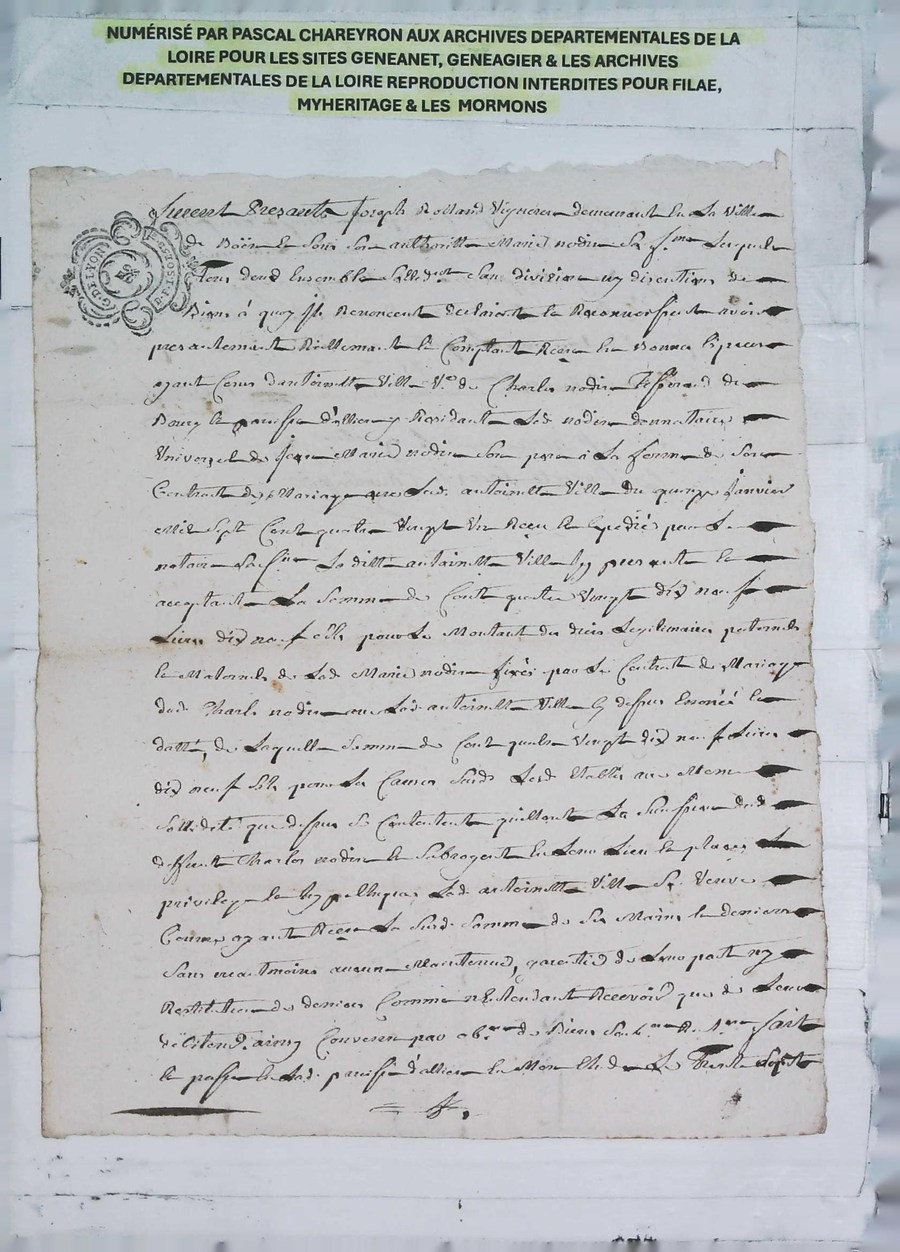 NUMÉRISÉ PAR PASCAL CHAREYRON AUX ARCHIVES DEPARTEMENTALES DE LA
LOIRE POUR LES SITES GENEANET, GENEAGIER & LES ARCHIVES
DEPARTEMENTALES DE LA LOIRE REPRODUCTION INTERDITES POUR FILAE,
MYHERITAGE & LES MORMONS
furent Presants Joseph Rolland Vigneron demeurant En La Ville
de Boën Et Sous Son authoritté Marie nodin Sa f.me Lesquels
tous deux Ensemble Sollid.t Sans division ny discution de
Biens à quoy ils Renoncent declairent Et Reconnoissent avoir
presantement Réellement Et Comptant Reçu En Bonnes Espèces
ayant Cours d'antoinette Ville V.e de Charles nodin
paroisse d'allieu y Residante Led. nodin donnataire
Universel de Jean Marie nodin Son pere à La forme de Son
Contrat de Mariage avec Lad. antoinette Ville du quinze Janvier
Mil Sept Cent quatre Vingt Un Reçu Et Expedié par Le
notaire Sousigné La ditte antoinette Ville Icy presente Et
acceptante La Somme de Cent quatre Vingt dix neuf
Livres dix neuf sols pour Le Montant des droits Legitimaires paternels
Et Maternels de Lad. Marie nodin fixés par Le Contrat de Mariage
dud. Charles nodin avec Lad. antoinette Ville Cy dessus Enoncé Et
datté, de Laquelle Somme de Cent quatre Vingt dix neuf Livres
dix neuf sols pour Les Causes Susd. Lesd. Rolland au Meme
Sollidité que dessus Se Contentent quittent La Succession dud.
deffunt Charles nodin Et Subrogent En Leur Lieu Et place
privilege Et hypotheques Lad. antoinette Ville Sa Veuve
Comme ayant Reçu La Susd. Somme de Ses Mains Et deniers
Sans neantmoins aucune Maintenue, garentie de Leur part ny
Restitution de deniers Comme n'Entendant Recevoir que de Leur
débiteur. ainsy Convenu par ob.on de Biens fait
Et passé En Lad. paroisse d'allieu Le Trente Sept